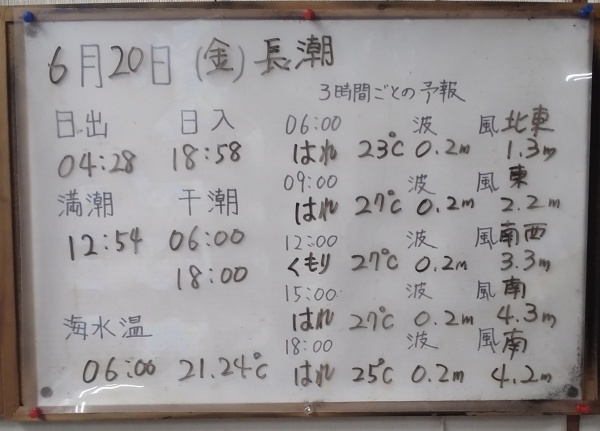 6月20日(金)長潮
3時間ごとの予報
日出 日入
04:28 18:58
満潮 干潮
12:54 06:00
18:00
海水温
06:00 21.24℃
06:00 波 風北東
はれ 23℃ 0.2m 1.3m
09:00 波 風東
はれ 27℃ 0.2m 2.2m
12:00 波 風南西
くもり 27℃ 0.2m 3.3m
15:00 波 風南
はれ 27℃ 0.2m 4.3m
18:00 波 風南
はれ 25℃ 0.2m 4.2m